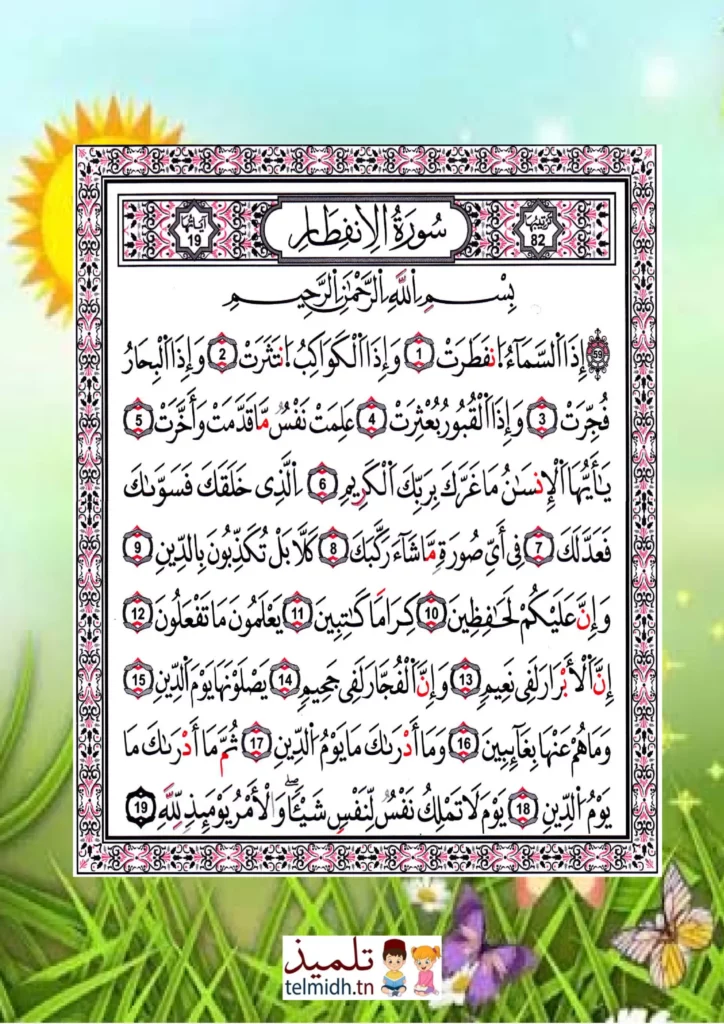 ترتيبها 82
سُورَةُ الِانفِطَارِ
آيَاتُهَا 19
بِسْمِ اِللَّهِ اِلرَّحْمَٰنِ اِلرَّحِيمِ
59 إِذَا اَلسَّمَآءُ اُ نفَطَرَتْ 1 وَإِذَا اَلْكَوَاكِبُ اُ نتَثَرَتْ 2 وَإِذَا اَلْبِحَارُ
فُجِّرَتْ 3 وَإِذَا اَلْقُبُورُ بُعْثِرَتْ 4 عَلِمَتْ نَفْسٌ مَّا قَدَّمَتْ وَأَخَّرَتْ 5
يَٰأَيُّهَا اَلْإِنسَٰنُ مَا غَرَّكَ بِرَبِّكَ اَلْكَرِيمِ 6 اِلَّذِى خَلَقَكَ فَسَوَّىٰكَ
فَعَدَّلَكَ 7 فِى أَىِّ صُورَةٍ مَّا شَآءَ رَكَّبَكَ 8 كَلَّا بَلْ تُكَذِّبُونَ بِالدِّينِ 9
وَإِنَّ عَلَيْكُمْ لَحَٰفِظِينَ 10 كِرَامًا كَٰتِبِينَ 11 يَعْلَمُونَ مَا تَفْعَلُونَ 12
إِنَّ اَلْأَبْرَارَ لَفِى نَعِيمٍ 13 وَإِنَّ اَلْفُجَّارَ لَفِى جَحِيمٍ 14 يَصْلَوْنَهَا يَوْمَ اَلدِّينِ 15
وَمَا هُمْ عَنْهَا بِغَآئِبِينَ 16 وَمَا أَدْرَىٰكَ مَا يَوْمُ اُلدِّينِ 17 ثُمَّ مَا أَدْرَىٰكَ مَا
يَوْمُ اُلدِّينِ 18 يَوْمَ لَا تَمْلِكُ نَفْسٌ لِّنَفْسٍ شَيْـًٔا وَالْأَمْرُ يَوْمَئِذٍ لِّلَّهِ 19
تلميذ
telmidh.tn